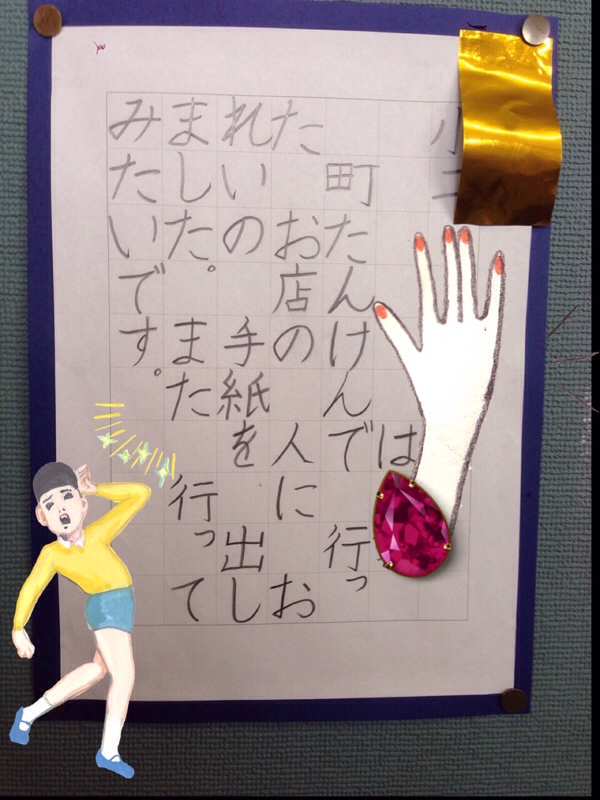 は
町たんけんで　行っ
た　お店の人に　お
れいの　手紙を　出し
ました。　また　行って
みたいです。